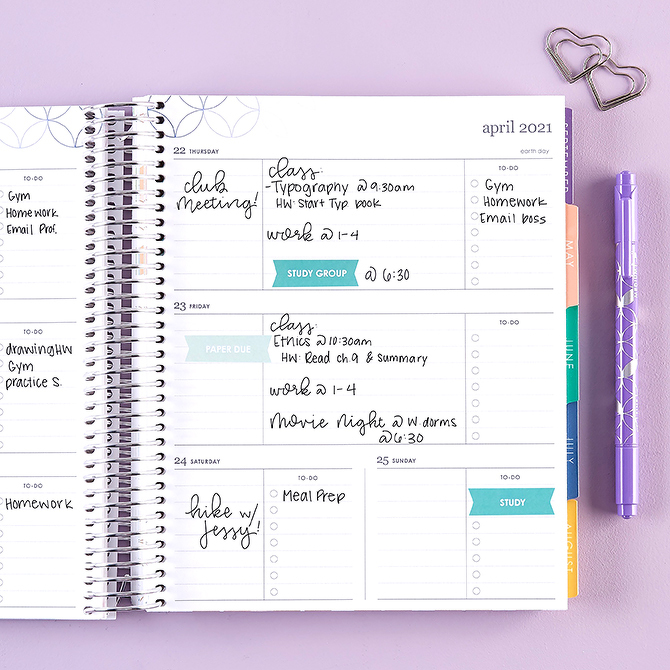 TO-DO
Gym
Homework
Email Prof.
TO-DO
drawing HW
Gym
practice S.
TO-DO
Homework
april 2021
22 THURSDAY
earth day
club
meeting!
class:
-Typography @ 9:30am
HW: Start Typ book
work @ 1-4
STUDY GROUP @ 6:30
TO-DO
Gym
Homework
Email boss
23 FRIDAY
PAPER DUE
class:
Ethics @ 10:30am
HW: Read ch.9 & summary
work @ 1-4
movie night @ W dorms
@ 6:30
TO-DO
24 SATURDAY
hike w/
Jessy!
TO-DO
Meal Prep
25 SUNDAY
TO-DO
STUDY
SEPTEMBER
MAY
JUNE
JULY
AUGUST